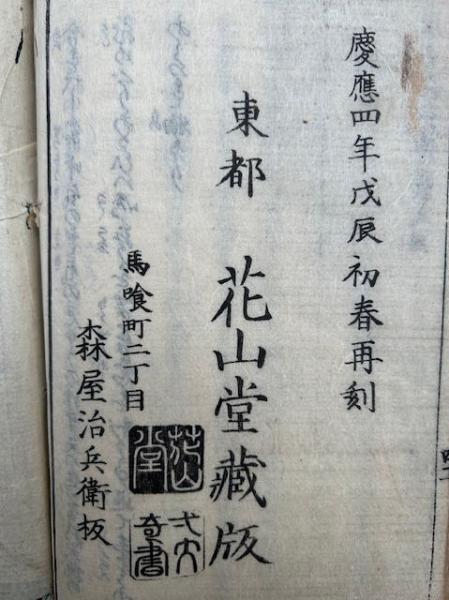 慶應四年戊辰初春再刻
東都 花山堂藏版
馬喰町二丁目
森屋治兵衛板
花山堂
奇書